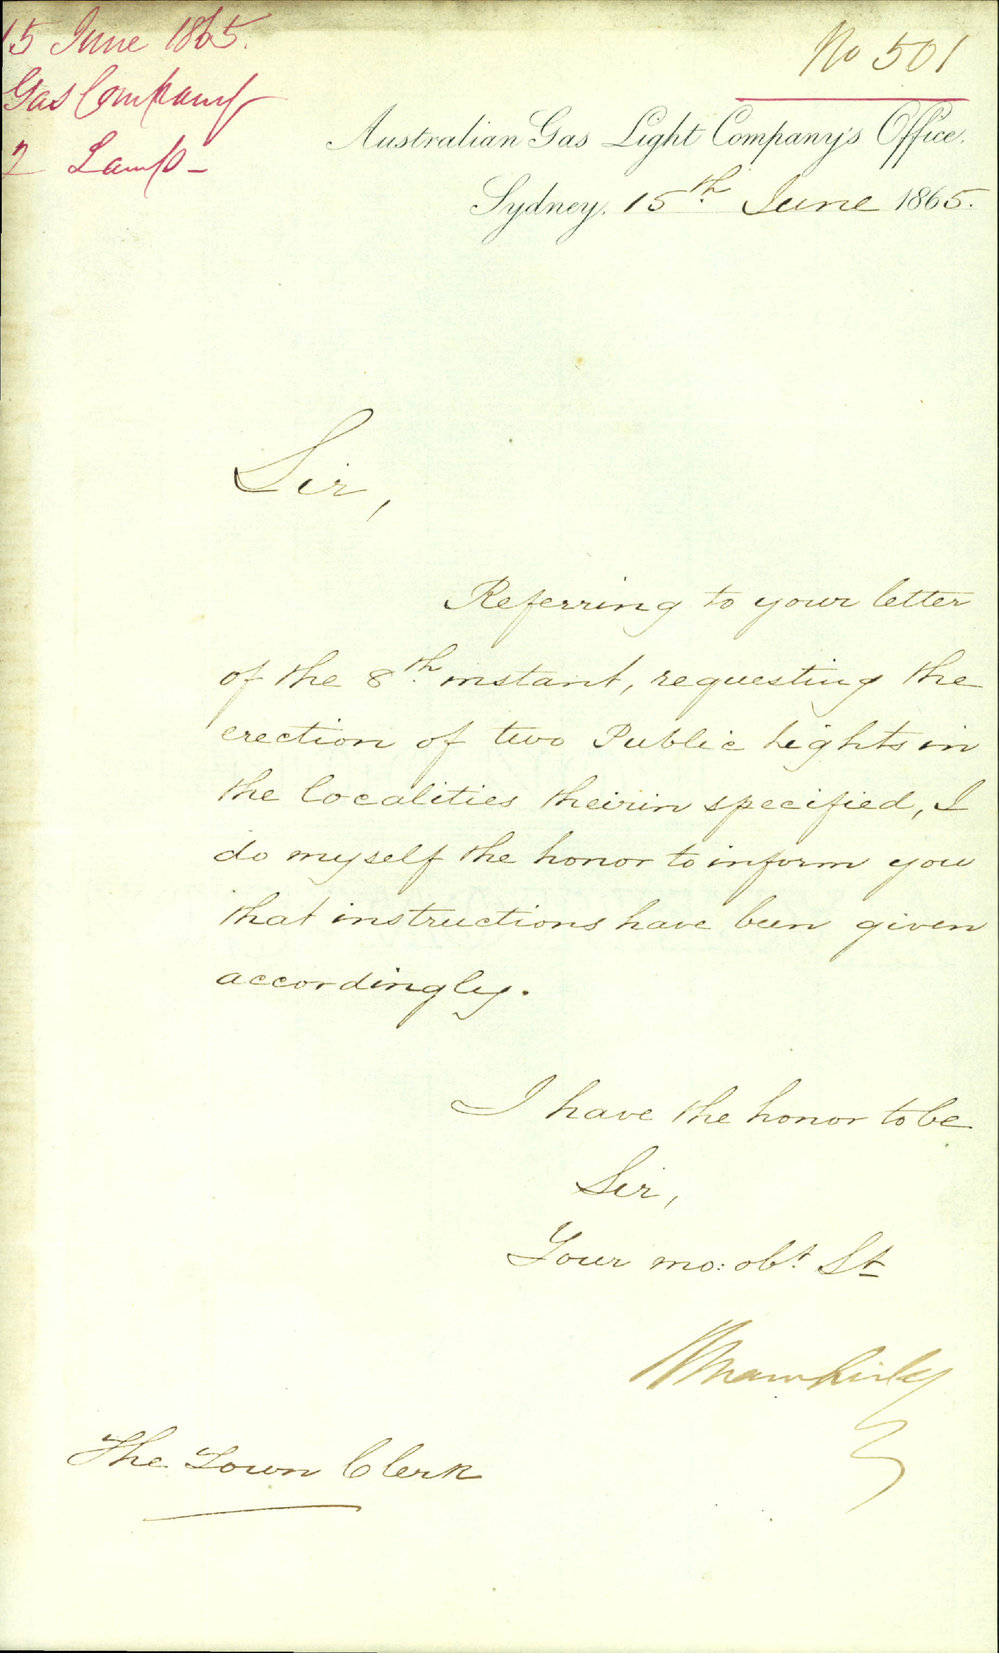 15 June 1865.
Gas Company
2 Lamps -
No 501
Australian Gas Light Company's Office.
Sydney, 15th June 1865.
Sir,
Referring to your letter
of the 8th instant, requesting the
erection of two Public Lights in
the localities therein specified, I
do myself the honor to inform you
that instructions have been given
accordingly.
I have the honor to be
Sir,
Your mo: obt. St
The Town Clerk